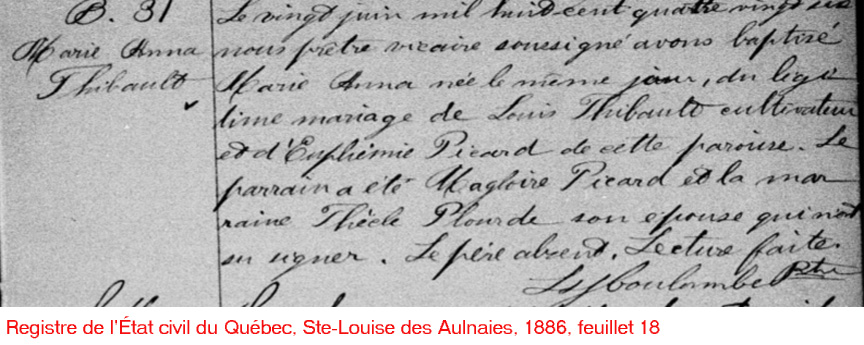 B. 31
Marie Anna
Thibault
Le vingt juin mil huit cent quatre vingt six
nous prêtre vicaire soussigné avons baptisé
Marie Anna née le même jour, du légi
time mariage de Louis Thibault cultivateur
et d'Euphémie Picard de cette paroisse. Le
parrain a été Magloire Picard et la mar
raine Thècle Plourde son epouse qui n'ont
su signer. Le père absent. Lecture faite.
Coulombe Ptre
Registre de l'État civil du Québec, Ste-Louise des Aulnaies, 1886, feuillet 18